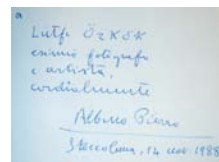 a
Lutfi Özkök
esimio fotografo
e artista,
cordialmente
Albino Pierro
Stoccolma, 14 nov. 1988